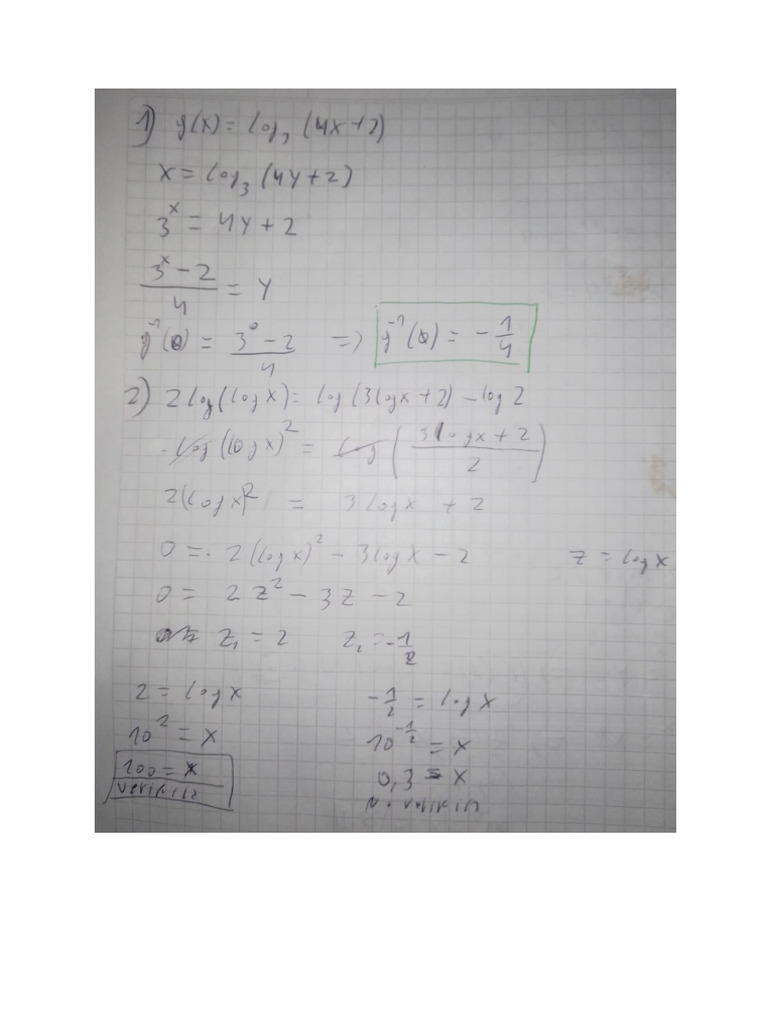 1) g(x) = log₃ (4x+2)
x = log₃ (4y+2)
3ˣ = 4y + 2
(3ˣ - 2)/4 = y
g⁻¹(0) = (3⁰ - 2)/4 => g⁻¹(0) = -1/4
2) 2 log(log x) = log(3 log x + 2) - log 2
log (log x)² = log ((3 log x + 2)/2)
2(log x)² = 3 log x + 2
0 = 2 (log x)² - 3 log x - 2 z = log x
0 = 2z² - 3z - 2
z₁ = 2 z₂ = -1/2
2 = log x -1/2 = log x
10² = x 10^(-1/2) = x
100 = x 0,3 = x
verifica n. verifica